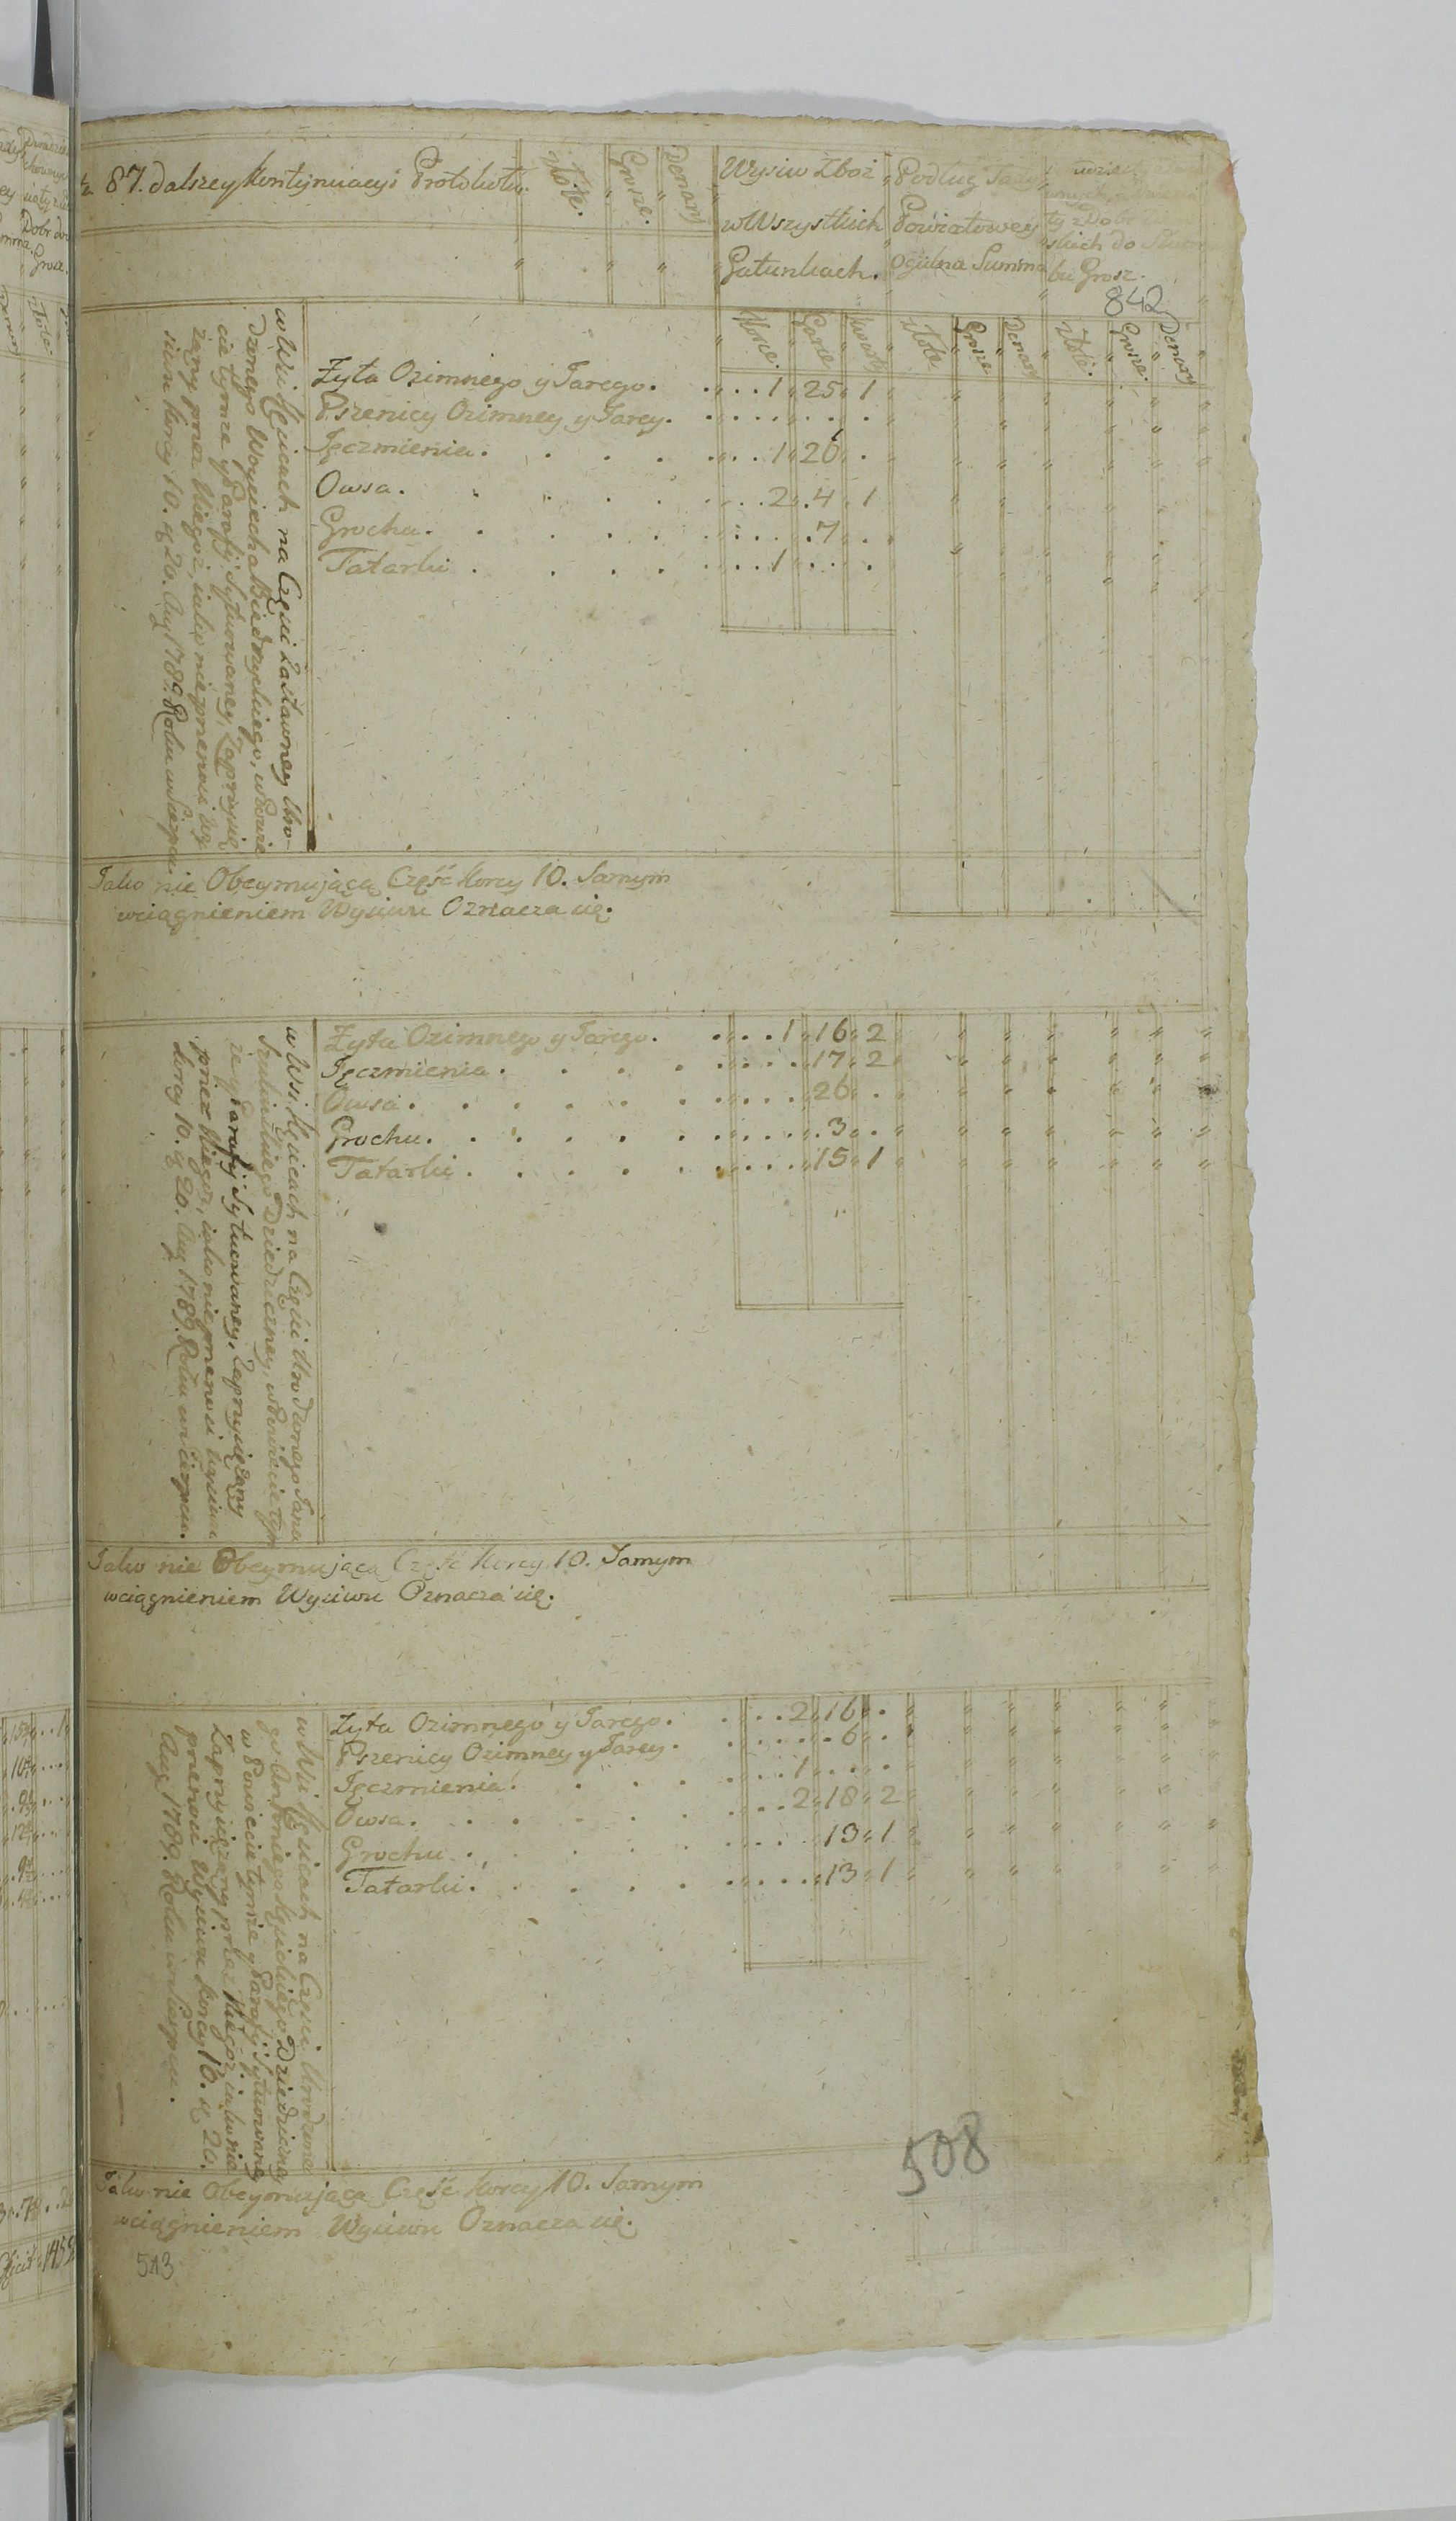 ta 87. dalszey kontynuacyi Protokołu.
Złote. Grosze. Denary
Wysiw Zboż
wWszystkich
Gatunkach.
Podług Taxy
Powiatowey
Ogulna Summa
ty z Dobr
skich do Skar
bu Grosz.
842
Korce. Garce Kwarty
Złote Grosze Denary
Złote. Grosze. Denary
w Wsi Kęsicach na Częsci Zastawney Uro-
dzonego Woyciecha Biedrzyckiego, w Powie
cie tymze y Parafij Sytuowaney, Zaprzysię
żony przez tkiegoż, iako nieprzenosi Wy
siewu korcy 10. d. 20. Aug 1789. Roku w Sierpcu
Żyta Ozimnego y Jarego. 1 25 1
Pszenicy Ozimney y Jarey.
Jęczmienia. 1 26
Owsa. 2 4 1
Grochu. 7
Tatarki 1
Jako nie Obeymującą Część korcy 10. Samym
wciągnieniem Wysiwu Oznacza się.
w Wsi Kęsicach na Częsci Urodzonego Jana
Dziedziczney, w Powiecie tym
że y Parafij Sytuowaney, Zaprzysiężony
przez tkiegoż, iako nieprzenosi Wysiwu
korcy 10. d. 20. Aug 1789. Roku w Sierpcu.
Żyta Ozimnego y Jarego. 1 16 2
Jęczmienia. 17 2
Owsa. 26
Grochu. 3
Tatarki. 15 1
Jako nie Obeymującą Część korcy 10. Samym
wciągnieniem Wysiwu Oznacza się.
w Wsi Kęsicach na Częsci Urodzone
go Antoniego Kęsickiego Dziedziczney
w Powiecie tymze y Parafij Sytuowaney
Zaprzysiężony przez tkiegoż iako nie
przenosi Wysiwu korcy 10. d. 20.
Aug 1789. Roku w Sierpcu.
Żyta Ozimnego y Jarego. 2 16
Pszenicy Ozimney y Jarey. 6
Jęczmienia. 1
Owsa. 2 18 2
Grochu. 13 1
Tatarki. 13 1
508
Jako nie Obeymującą Część korcy 10. Samym
wciągnieniem Wysiwu Oznacza się.
513